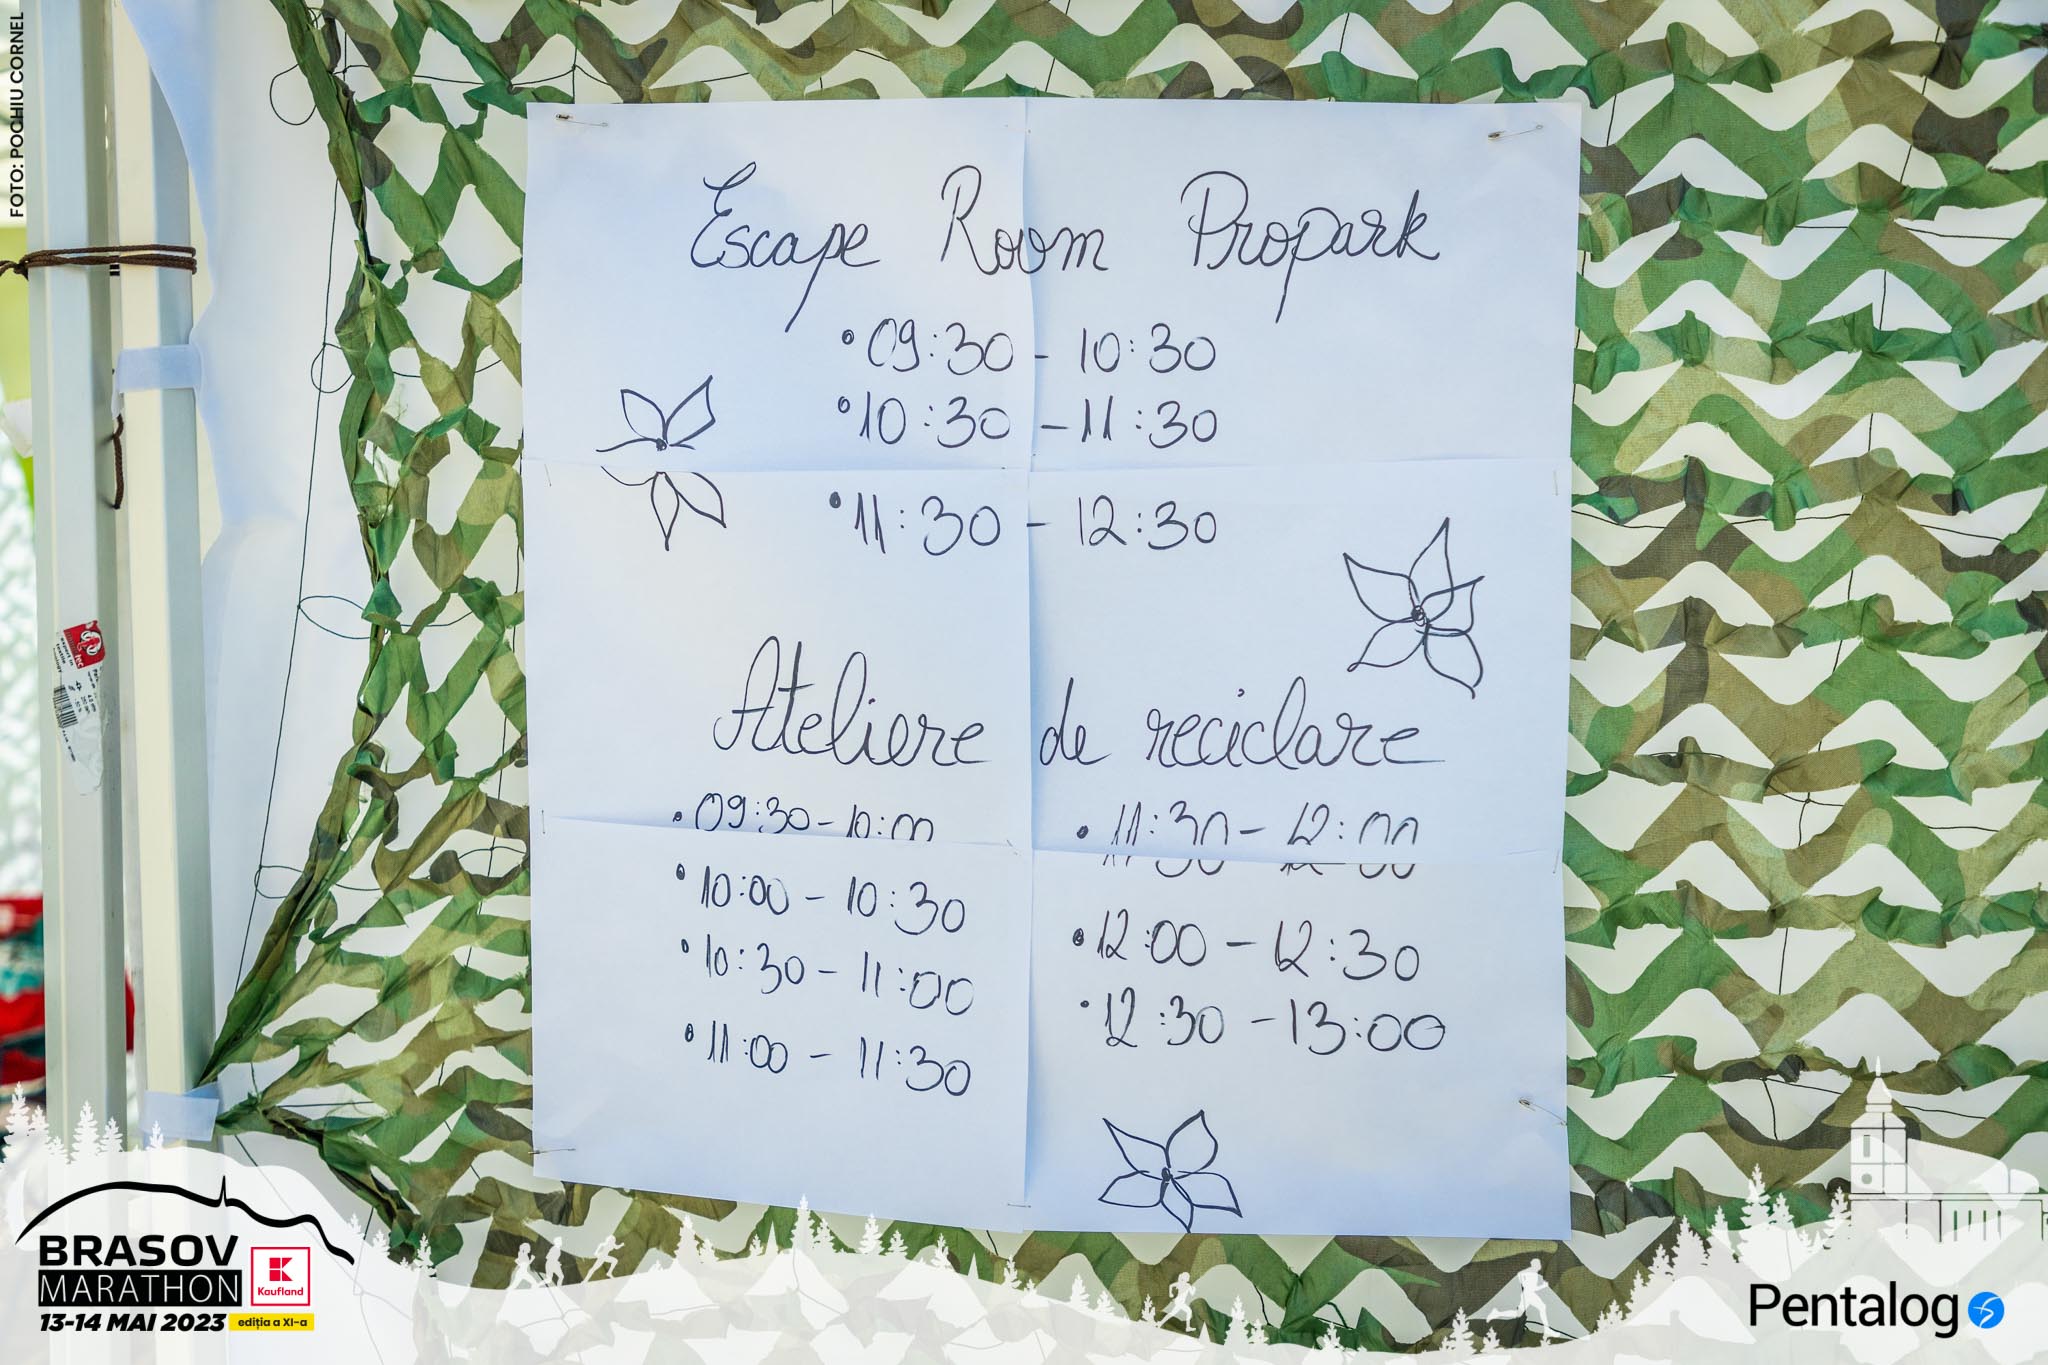 FOTO: POCHIU CORNEL
Escape Room Propark
• 09:30 - 10:30
• 10:30 - 11:30
• 11:30 - 12:30
Ateliere de reciclare
• 09:30 - 10:00
• 10:00 - 10:30
• 10:30 - 11:00
• 11:00 - 11:30
• 11:30 - 12:00
• 12:00 - 12:30
• 12:30 - 13:00
BRASOV
MARATHON
Kaufland
13-14 MAI 2023
ediția a XI-a
Pentalog